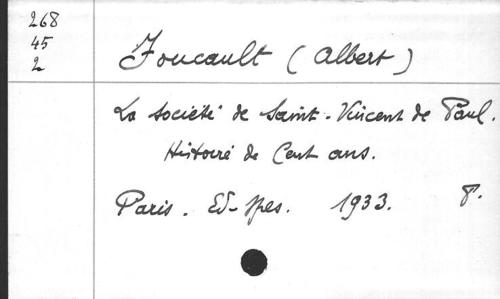 268
45
2
Foucault (Albert)
La société de Saint-Vincent de Paul.
Histoire de Cent ans.
Paris. Ed-Spes. 1933. 8°.